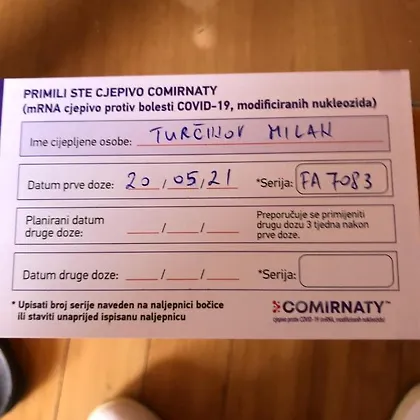 PRIMILI STE CJEPIVO COMIRNATY
(mRNA cjepivo protiv bolesti COVID-19, modificiranih nukleozida)
Ime cijepljene osobe: TURČINOV MILAN
Datum prve doze: 20 / 05 / 21 *Serija: FA7083
Planirani datum druge doze: / / Preporučuje se primijeniti
drugu dozu 3 tjedna nakon
prve doze.
Datum druge doze: / / *Serija:
* Upisati broj serije naveden na naljepnici bočice
ili staviti unaprijed ispisanu naljepnicu
COMIRNATY™
cjepivo protiv COVID-19 mRNA, modificiranih nukleozida